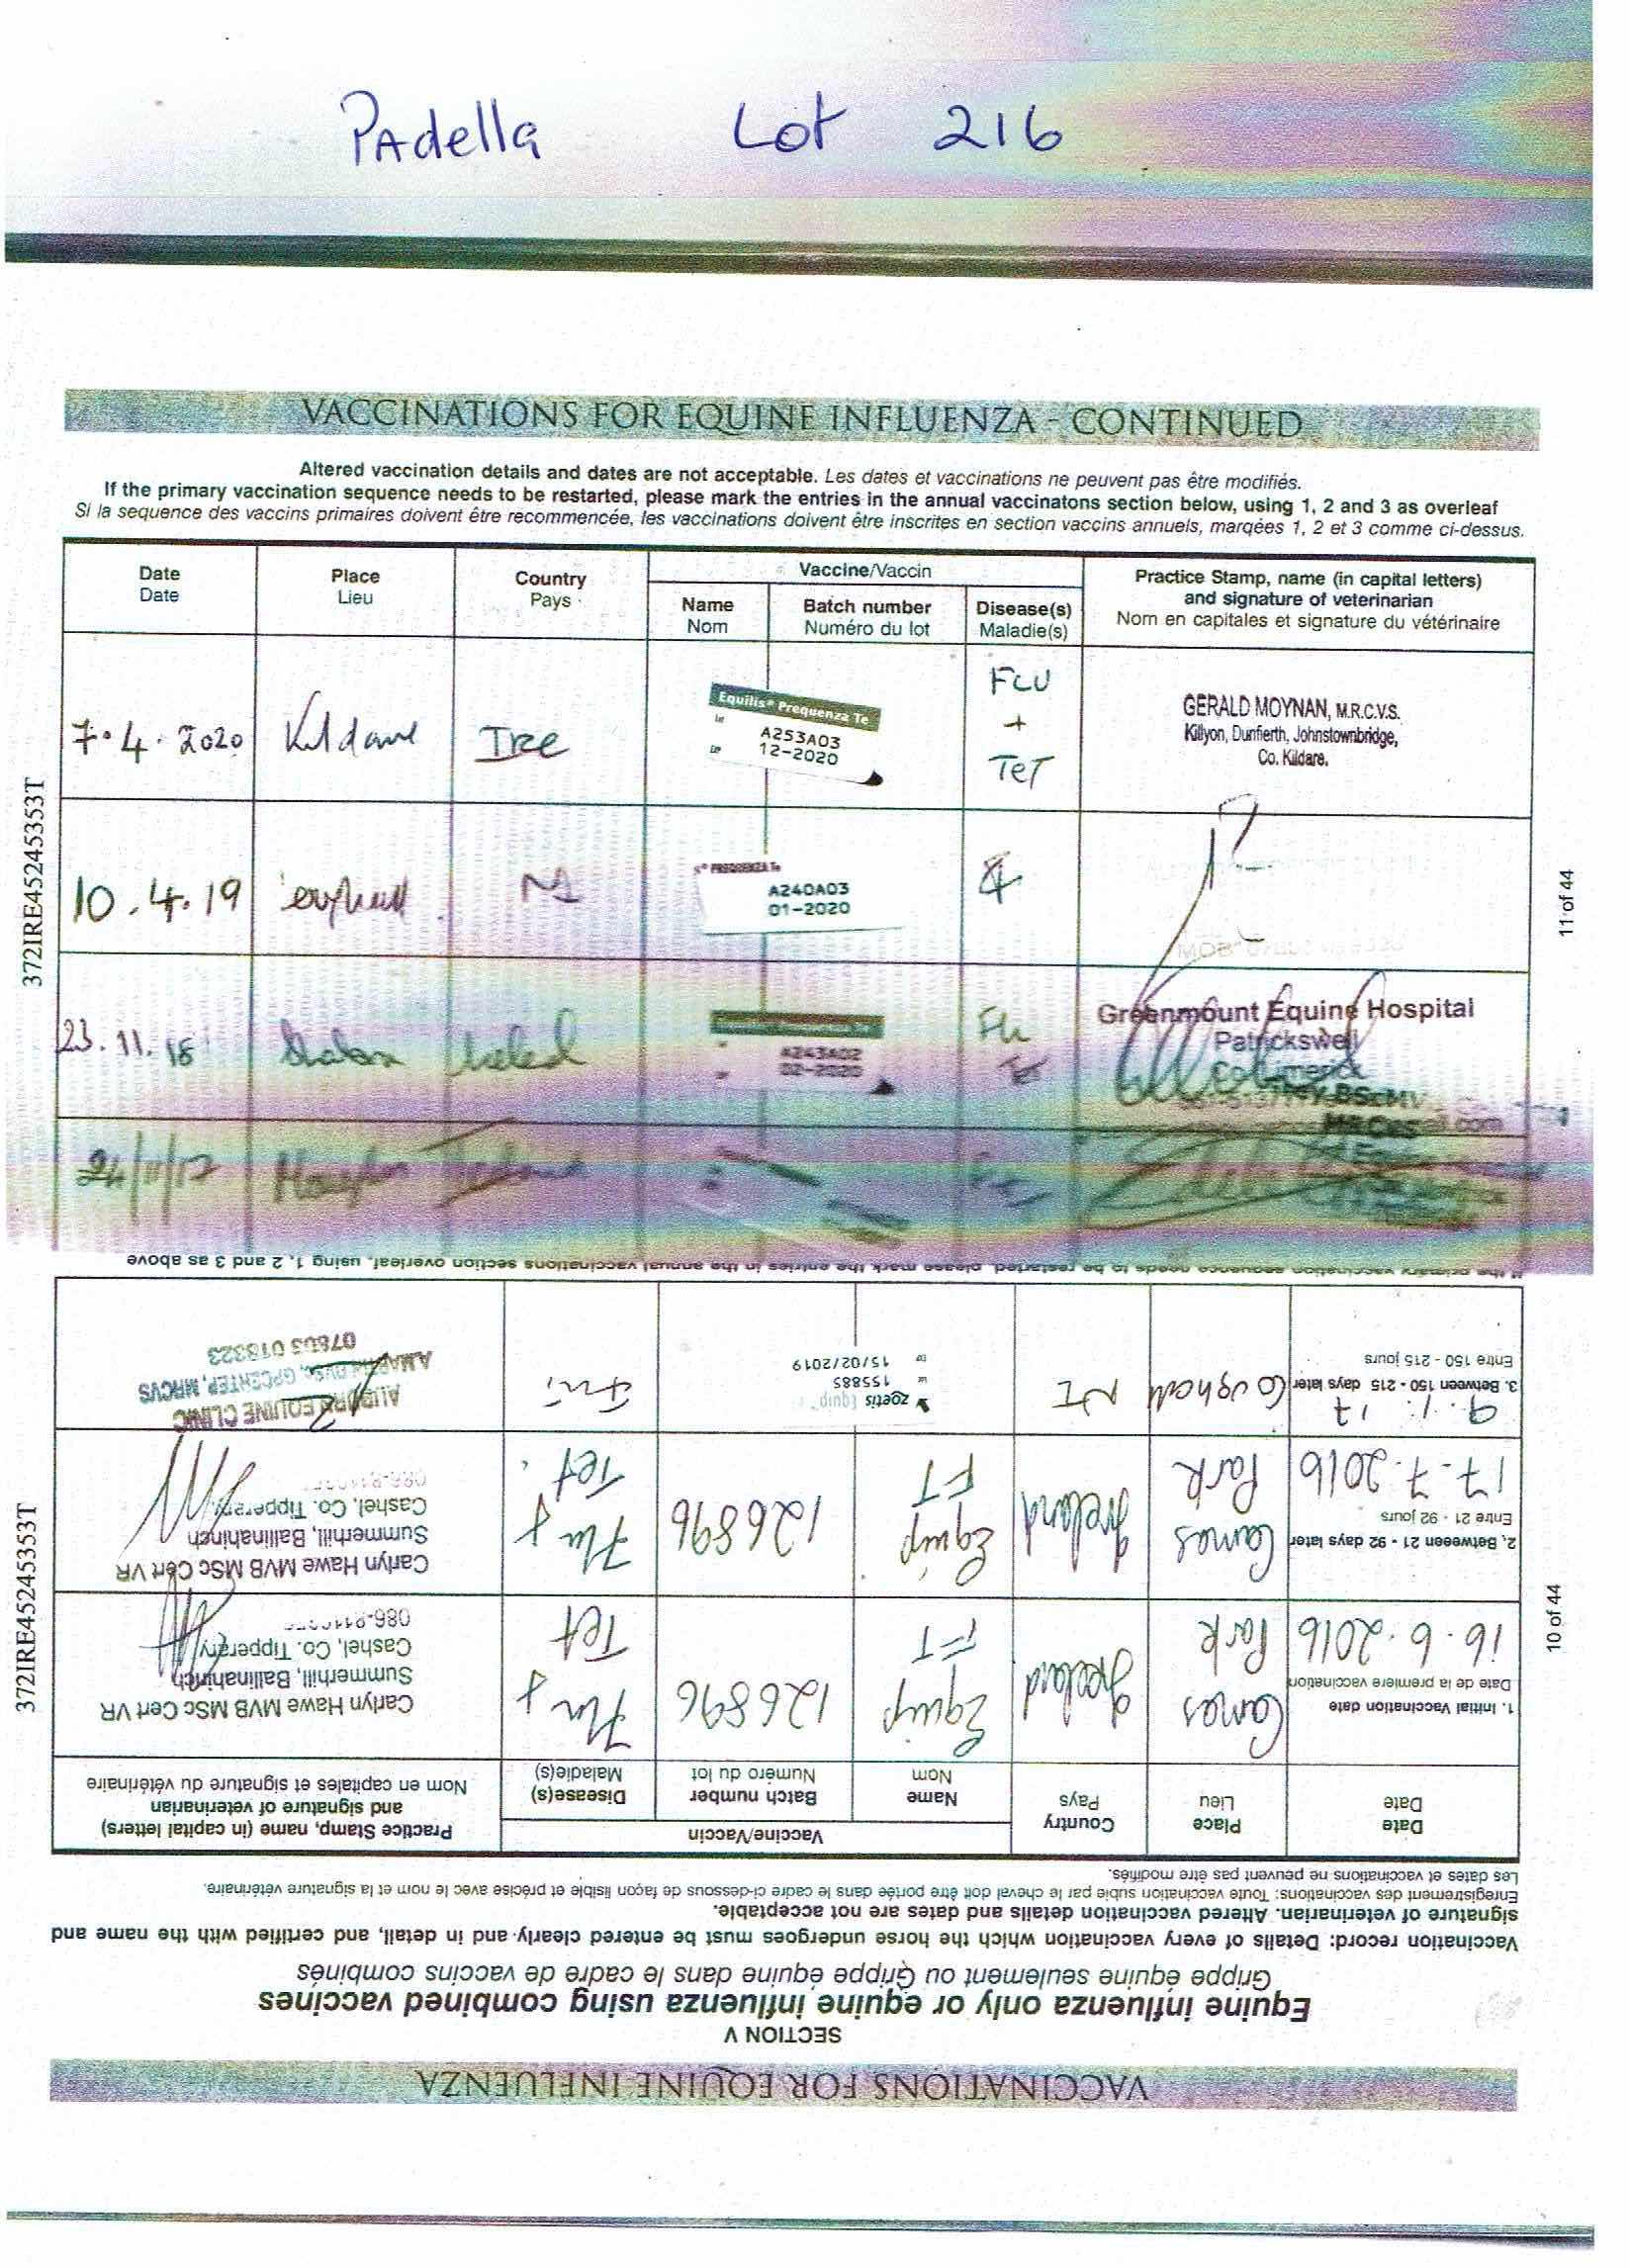 PAdella Lot 216
VACCINATIONS FOR EQUINE INFLUENZA - CONTINUED
Altered vaccination details and dates are not acceptable. Les dates et vaccinations ne peuvent pas être modifiés.
If the primary vaccination sequence needs to be restarted, please mark the entries in the annual vaccinatons section below, using 1, 2 and 3 as overleaf
Si la sequence des vaccins primaires doivent être recommencée, les vaccinations doivent être inscrites en section vaccins annuels, marqées 1, 2 et 3 comme ci-dessus.
Date
Date
Place
Lieu
Country
Pays
Vaccine/Vaccin
Name
Nom
Batch number
Numéro du lot
Disease(s)
Maladie(s)
Practice Stamp, name (in capital letters)
and signature of veterinarian
Nom en capitales et signature du vétérinaire
7.4.2020
Kildare
IRE
Equilis® Prequenza Te
A253A03
12-2020
FLU
+
TeT
GERALD MOYNAN, M.R.C.V.S.
Killyon, Dunfierth, Johnstownbridge,
Co. Kildare.
10.4.19
PREQUENZA Te
A240A03
01-2020
23.11.18
Ireland
A243A02
02-2020
Flu
Greenmount Equine Hospital
Patrickswell
Co Limerick
24/11/17
372IRE45245353T
11 of 44
If the primary vaccination sequence needs to be restarted, please mark the entries in the annual vaccinations section overleaf, using 1, 2 and 3 as above
VACCINATIONS FOR EQUINE INFLUENZA
SECTION V
Equine influenza only or equine influenza using combined vaccines
Grippe équine seulement ou Grippe équine dans le cadre de vaccins combinés
Vaccination record: Details of every vaccination which the horse undergoes must be entered clearly and in detail, and certified with the name and
signature of veterinarian. Altered vaccination details and dates are not acceptable.
Enregistrement des vaccinations: Toute vaccination subie par le cheval doit être portée dans le cadre ci-dessous de façon lisible et précise avec le nom et la signature vétérinaire.
Les dates et vaccinations ne peuvent pas être modifiés.
Date
Date
Place
Lieu
Country
Pays
Vaccine/Vaccin
Name
Nom
Batch number
Numéro du lot
Disease(s)
Maladie(s)
Practice Stamp, name (in capital letters)
and signature of veterinarian
Nom en capitales et signature du vétérinaire
1. Initial Vaccination date
Date de la premiere vaccination
16.6.2016
Camas
Park
Ireland
Equip
FT
126896
Flu &
Tet
Carlyn Hawe MVB MSc Cert VR
Summerhill, Ballinahinch
Cashel, Co. Tipperary
2, Betweeen 21 - 92 days later
Entre 21 - 92 jours
17.7.2016
Camas
Park
Ireland
Equip
FT
126896
Flu &
Tet.
Carlyn Hawe MVB MSc Cert VR
Summerhill, Ballinahinch
Cashel, Co. Tipperary
9.1.17
3. Between 150 - 215 days later
Entre 150 - 215 jours
Loughall
NI
zoetis Equip
155885
15/02/2019
AUBURN EQUINE CLINIC
07803 018323
372IRE45245353T
10 of 44